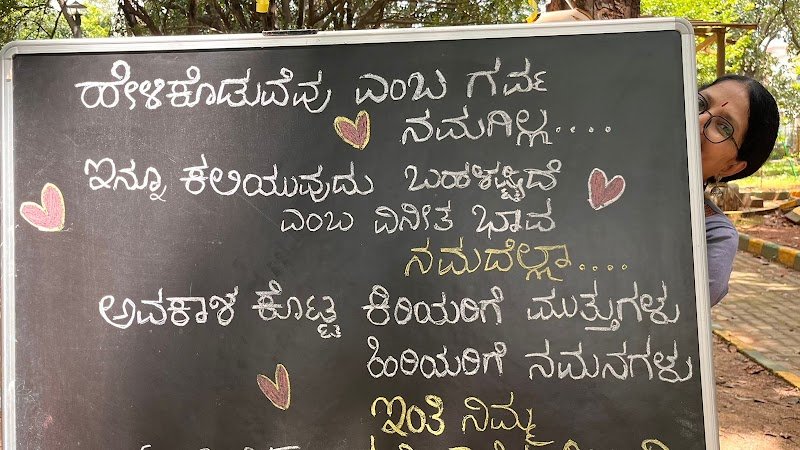 ಹೇಳಿಕೊಡುವೆವು ಎಂಬ ಗರ್ವ
ನಮಗಿಲ್ಲ....
ಇನ್ನೂ ಕಲಿಯುವುದು ಬಹಳಷ್ಟಿದೆ
ಎಂಬ ವಿನೀತ ಭಾವ
ನಮದೆಲ್ಲಾ....
ಅವಕಾಶ ಕೊಟ್ಟ ಕಿರಿಯರಿಗೆ ಮುತ್ತುಗಳು
ಹಿರಿಯರಿಗೆ ನಮನಗಳು
ಇಂತಿ ನಿಮ್ಮ